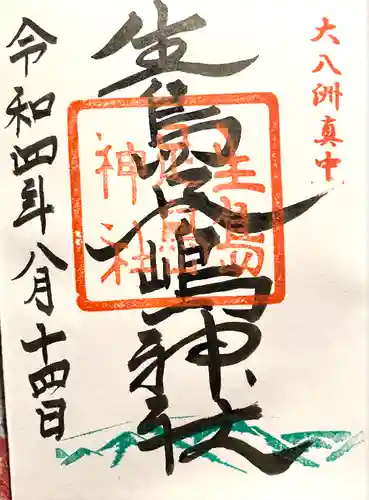 大八洲真中
生島足嶋神社
生島足島神社
令和四年八月十四日